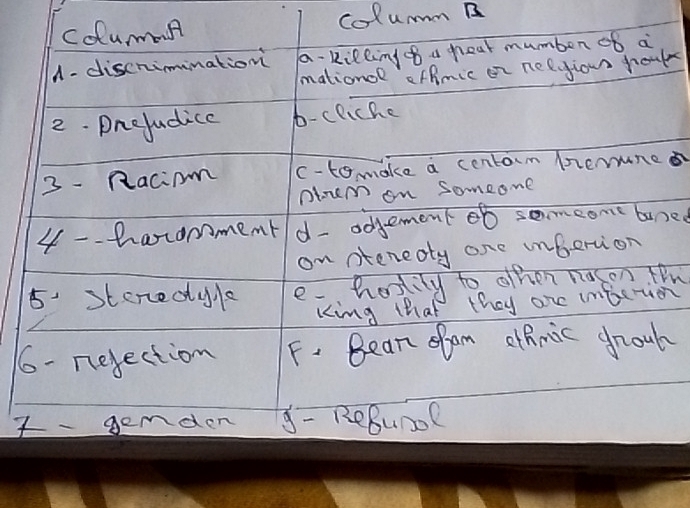 Column A
Column B
1 - discrimination
a - killing of a great number of a
national ethnic or religious groups
2 - Prejudice
b - cliche
3 - Racism
c - to make a certain pressure or
stress on someone
4 - - harassment
d - adjement of someone based
on stereoty are inferior
5. Stereotype
e - hostility to other races thin
king that they are inferior
6 - rejection
F. Bear of an ethnic group
7 - gender
g - Refusal